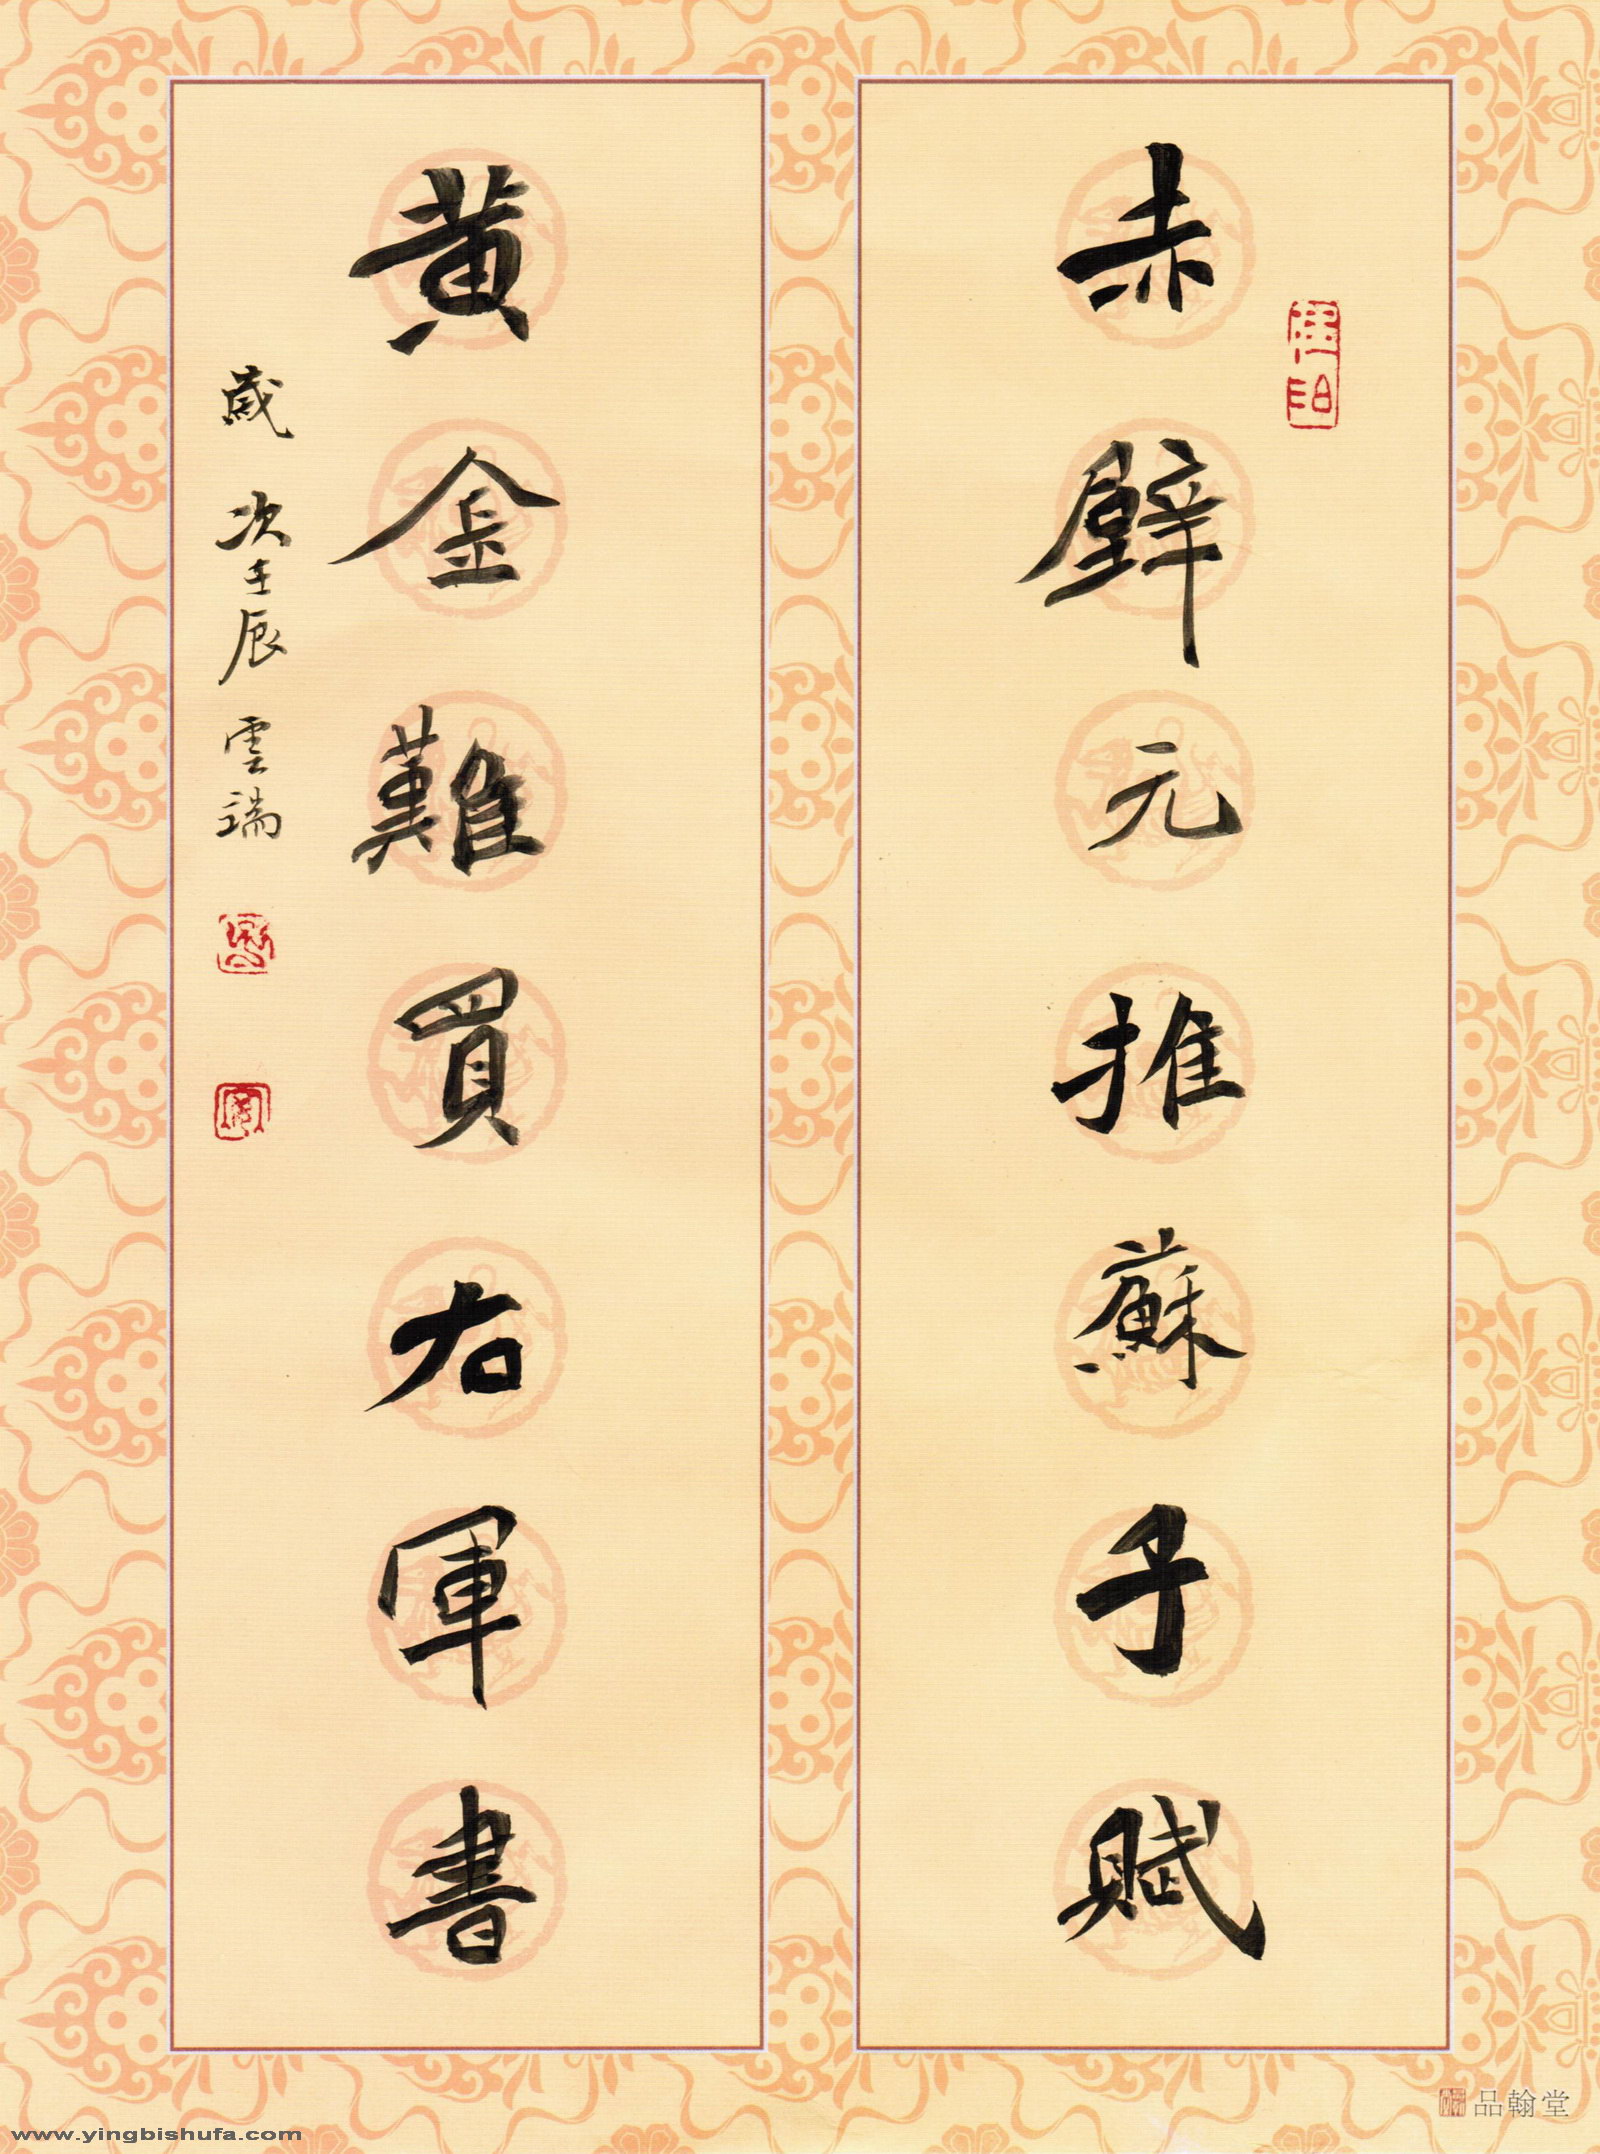 赤壁元推蘇子賦
黃金難買右軍書
歲次壬辰雲端
品翰堂
www.yingbishufa.com